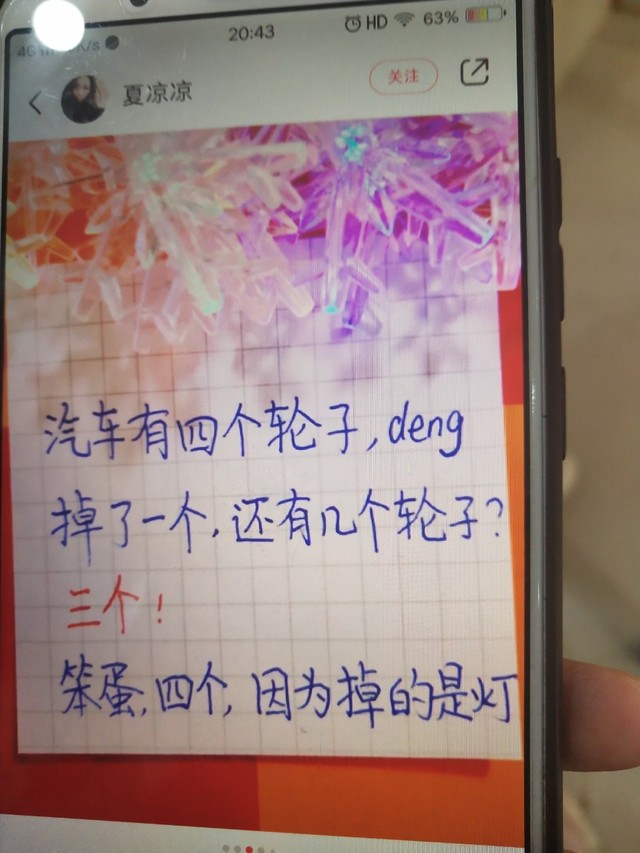 20:43
HD
63%
夏凉凉
关注
汽车有四个轮子,deng
掉了一个,还有几个轮子?
三个!
笨蛋,四个,因为掉的是灯